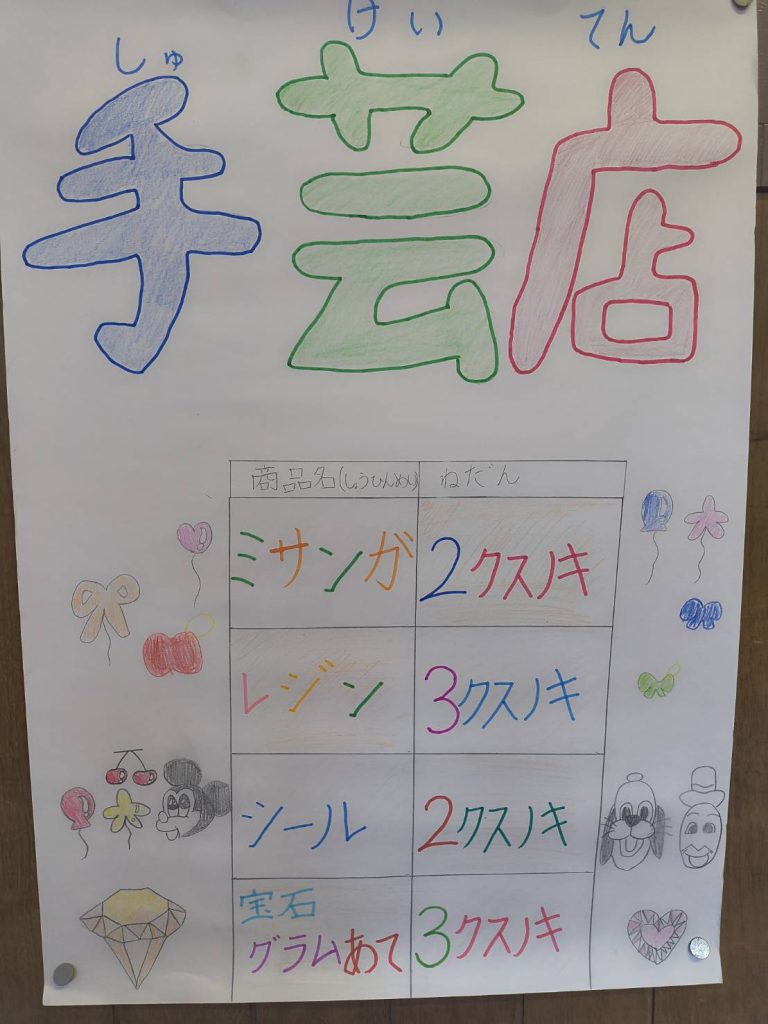 しゅ けい てん
手芸店
商品名(しょうひんめい) ねだん
ミサンガ 2クスノキ
レジン 3クスノキ
シール 2クスノキ
宝石
グラムあて 3クスノキ